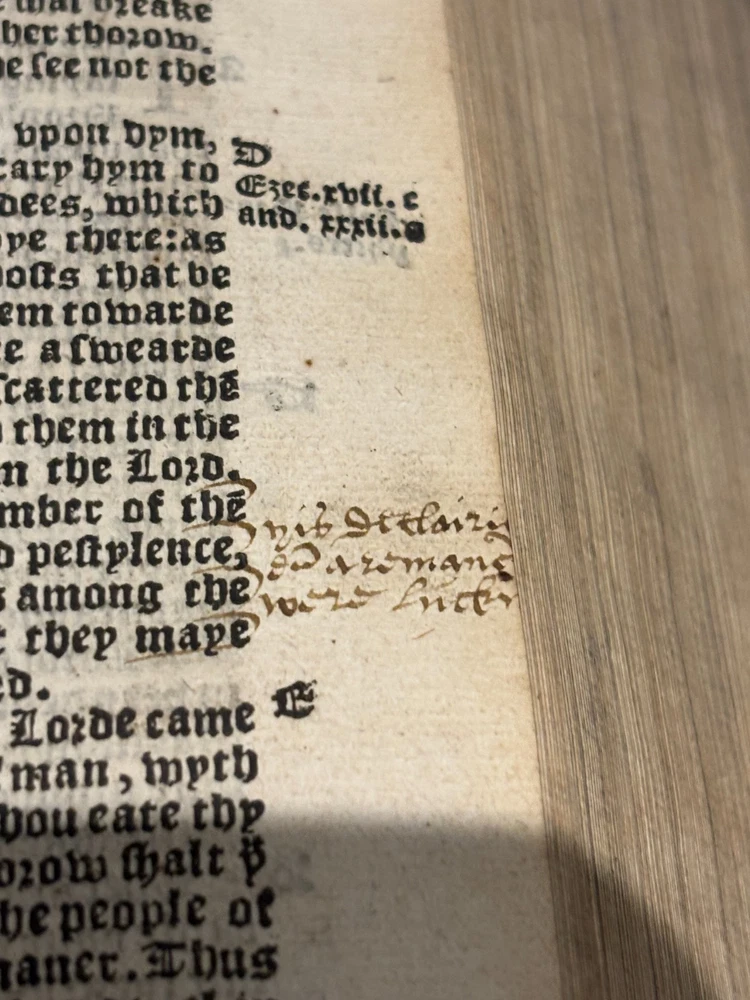 breake
ther thorow.
he see not the
vpon hym,
cary hym to
dees, which
ype there: as
hosts that be
em towarde
e a swearde
scattered thē
them in the
n the Lord.
mber of thē
d pestylence,
s among the
t they maye
ed.
Lorde came
man, wyth
hou eate thy
orow shalt yͤ
he people of
maner. Thus
D
Ezec.xvii. c
and. xxxii.
yis declairi
aremang
were lucky
E